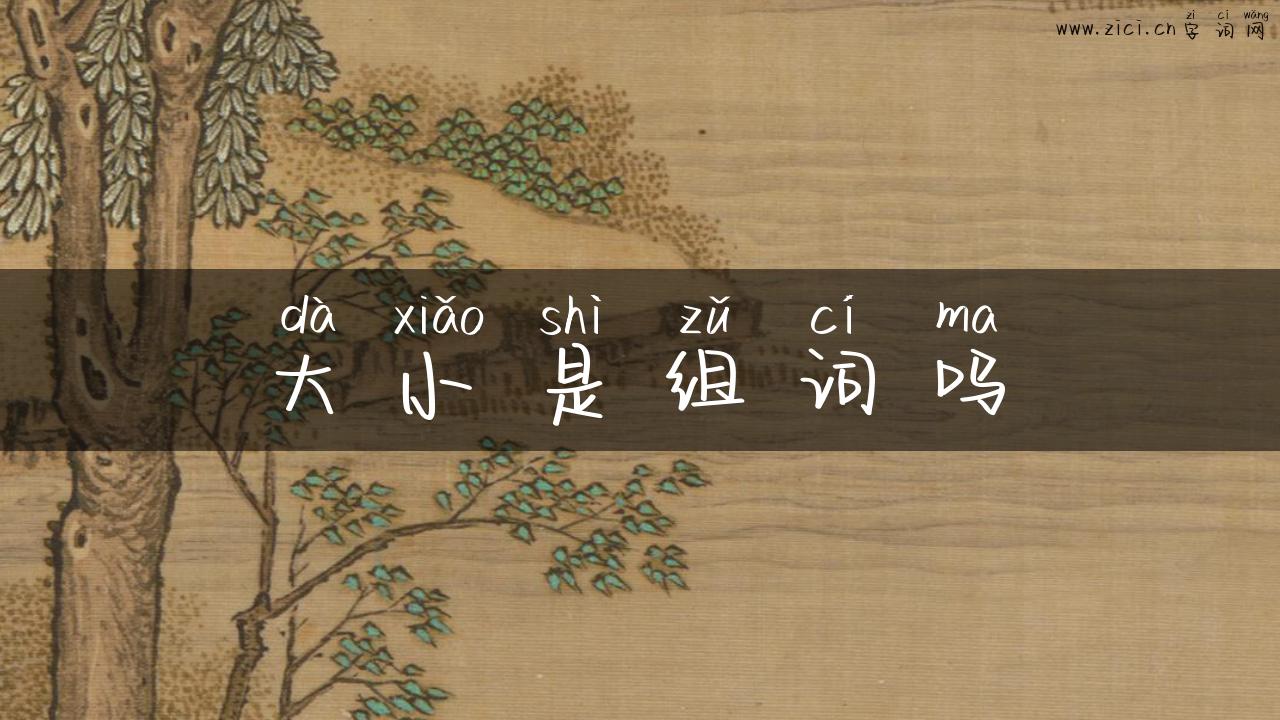 zì cí wǎng
www.zici.cn 字词网
dà xiǎo shì zǔ cí ma
大小是组词吗